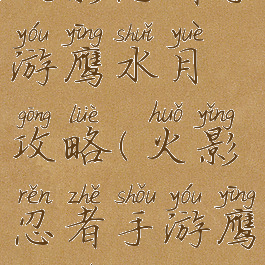 yóu yīng shuǐ yuè
游鹰水月
gōng lüè huǒ yǐng
攻略(火影
rěn zhě shǒu yóu yīng
忍者手游鹰